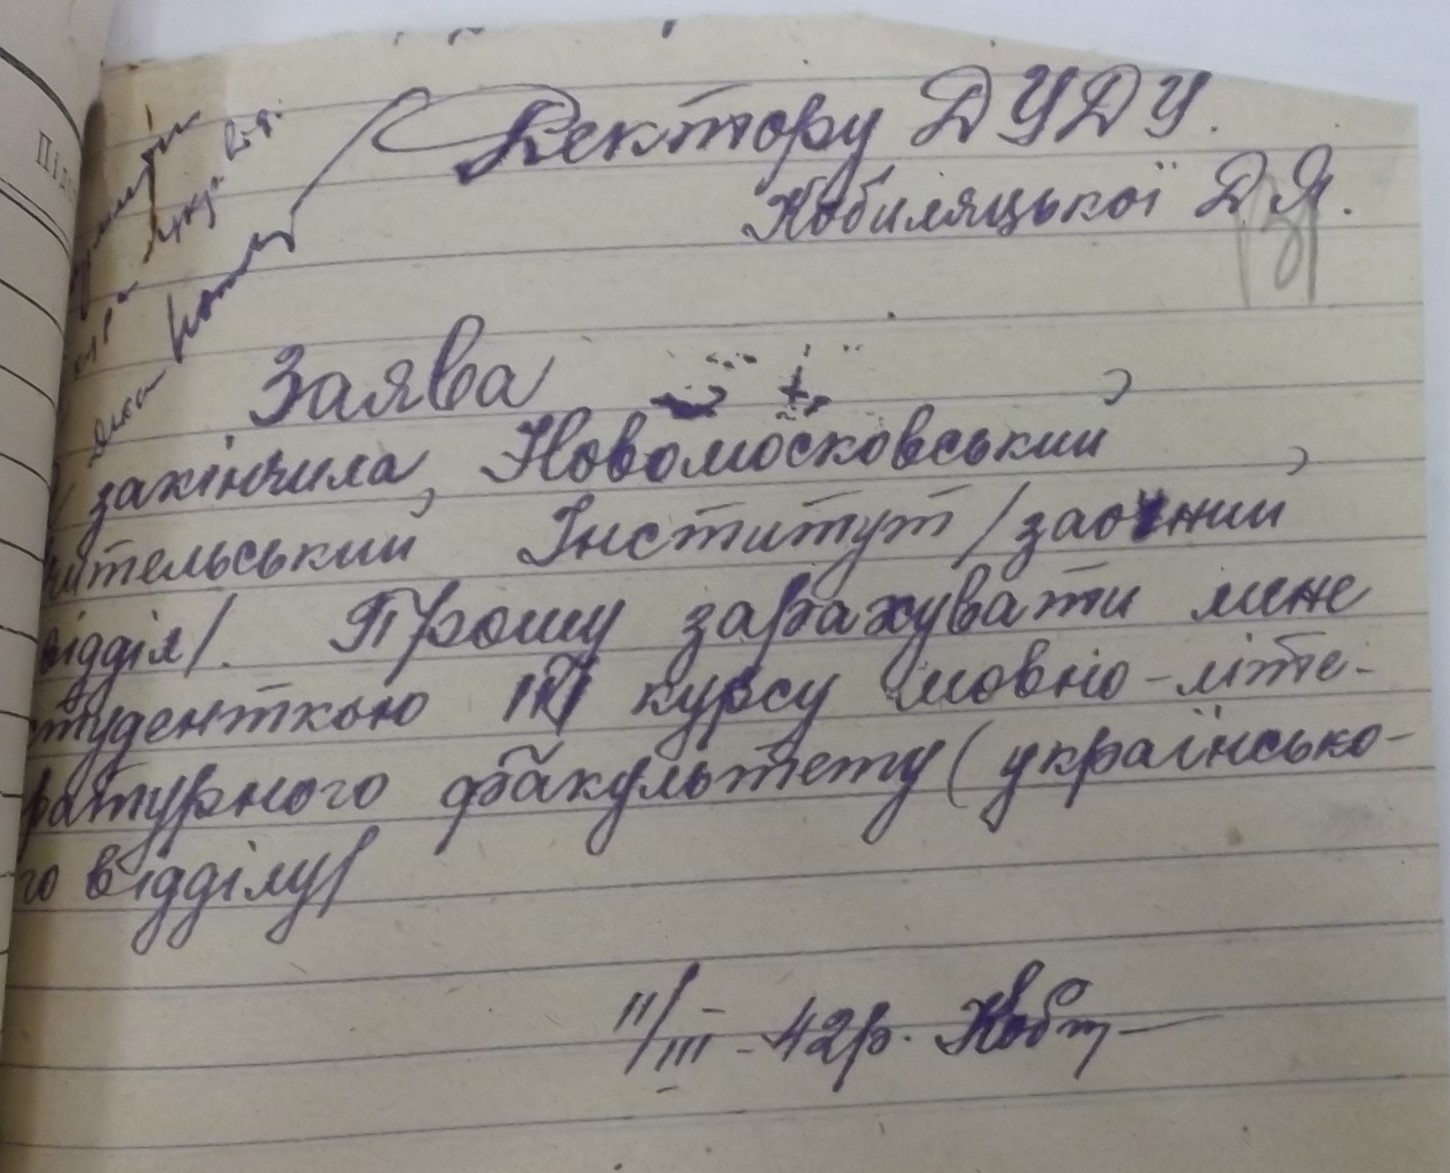 Ректору ДУДУ.
Кобиляцької Д.Я.
Заява
закінчила, Новомосковський
чительський Інститут /заочний
відділ/. Прошу зарахувати мене
студенткою III курсу мовно-літе-
ратурного факультету (українсько-
го відділу/
11/III-42р. Коб